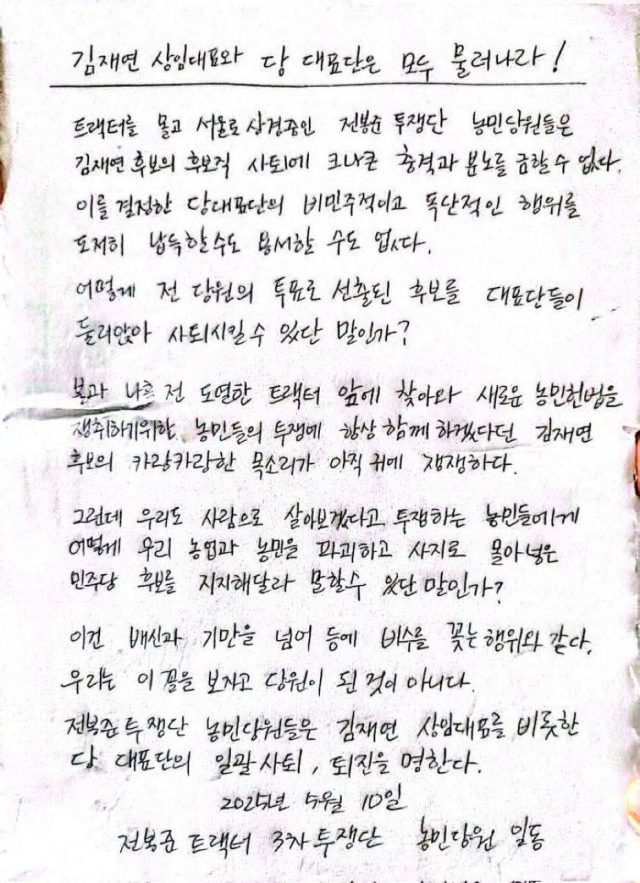 김재연 상임대표와 당 대표단은 모두 물러나라!
트랙터를 몰고 서울로 상경중인 전봉준 투쟁단 농민당원들은
김재연 후보의 후보직 사퇴에 크나큰 충격과 분노를 금할 수 없다.
이를 결정한 당대표단의 비민주적이고 독단적인 행위를
도저히 납득할수도 용서할 수도 없다.
어떻게 전 당원의 투표로 선출된 후보를 대표단들이
둘러앉아 사퇴시킬 수 있단 말인가?
불과 나흘 전 도열한 트랙터 앞에 찾아와 새로운 농민헌법을
쟁취하기위한 농민들의 투쟁에 항상 함께 하겠다던 김재연
후보의 카랑카랑한 목소리가 아직 귀에 쟁쟁하다.
그런데 우리도 사람으로 살아보겠다고 투쟁하는 농민들에게
어떻게 우리 농업과 농민을 파괴하고 사지로 몰아넣은
민주당 후보를 지지해달라 말할수 있단 말인가?
이건 배신과 기만을 넘어 등에 비수를 꽂는 행위와 같다.
우리는 이 꼴을 보자고 당원이 된 것이 아니다.
전봉준 투쟁단 농민당원들은 김재연 상임대표를 비롯한
당 대표단의 일괄 사퇴, 퇴진을 명한다.
2025년 5월 10일
전봉준 트랙터 3차 투쟁단 농민당원 일동